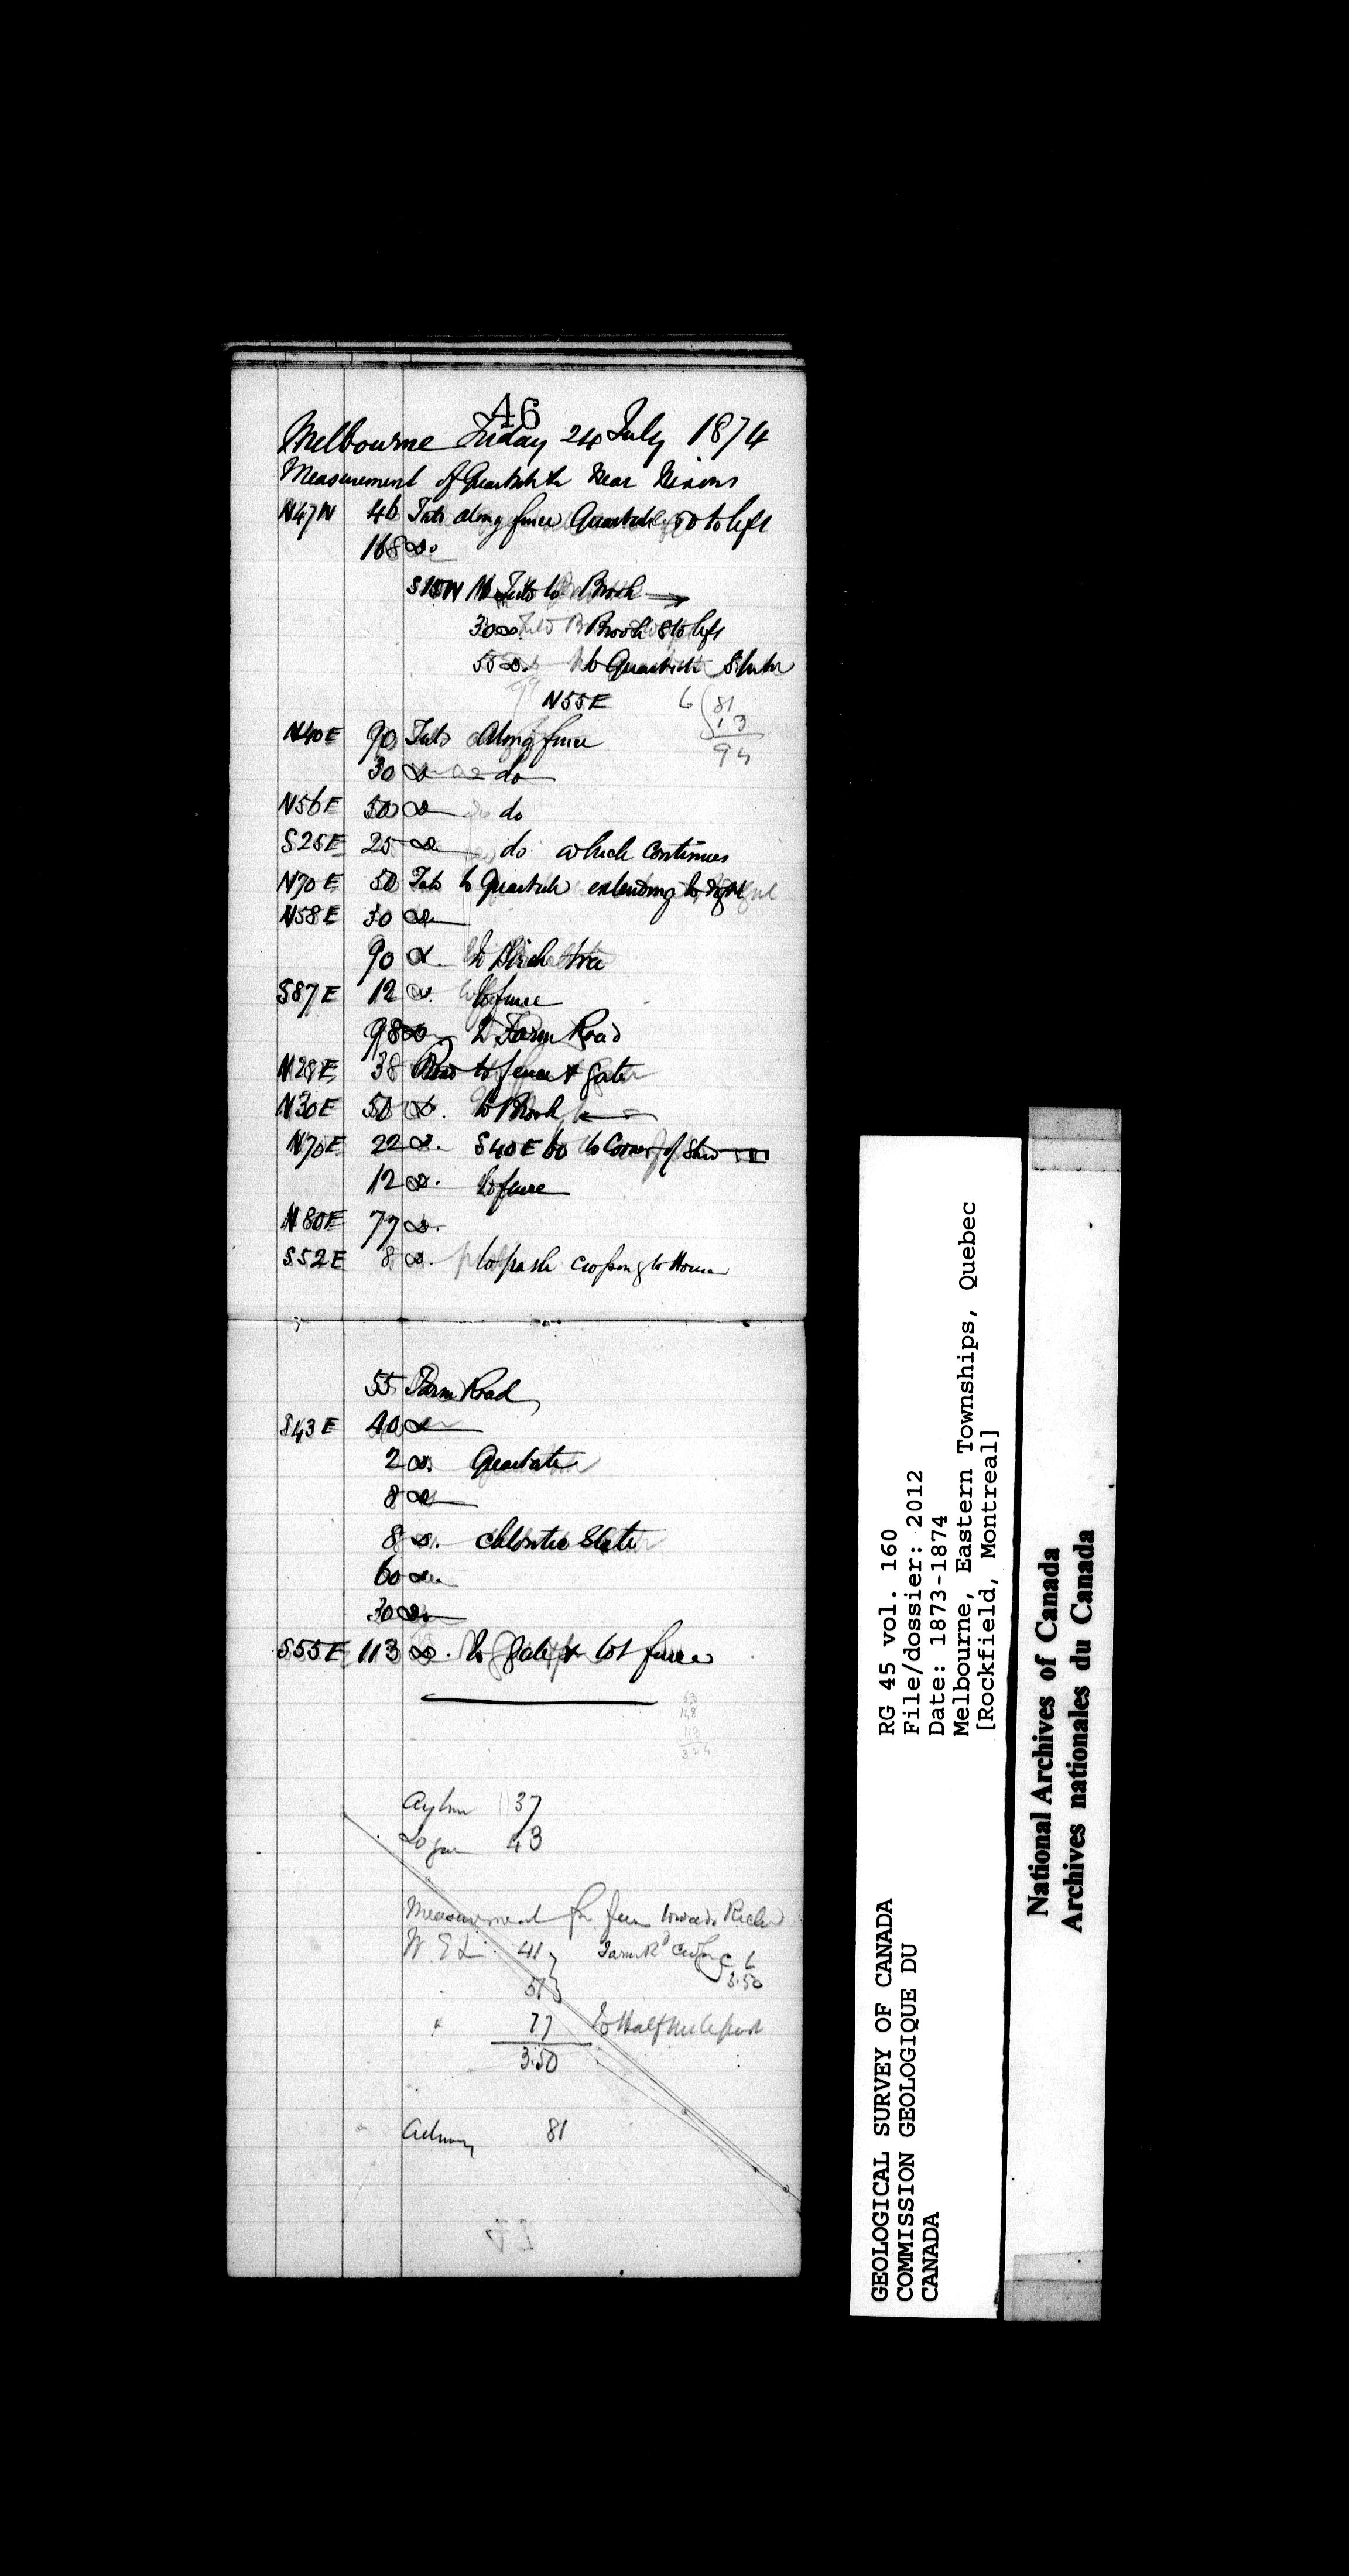 46
Melbourne Friday 24 July 1874
Measurement of Quartzite Near Nixons
N47W 46 Field along fence Quartzite 50 to left
168 do
S15W Field to Brook →
30 do. Brook 8 to left
55 do. to Quartzite Strike
N55E
6 81
13
94
N40E 90 Field Along fence
30 do do
N56E 50 do do
S25E 25 do do which Continues
N70E 50 Field to Quartzite extending to right
N58E 30 do
90 do. to Birch tree
S87E 12 do. to fence
98 do to Farm Road
N28E 38 Road to fence & gate
N30E 50 do. to Brook ←
N70E 22 do. S40E 60 to Corner of
12 do. to fence
N80E 77 do.
S52E 8 do. to path crossing to House
55 Farm Road
S43E 40 do
2 do. Quartzite
8 do
8 do. Chloritic Slate
60 do
30 do
S55E 113 do. to gate & lot fence
63
148
113
324
Aylmer 37
Logan 43
Measurement towards
41 Farm Rd
3.50
51
77 to Half mile post
3.50
81
GEOLOGICAL SURVEY OF CANADA
COMMISSION GEOLOGIQUE DU
CANADA
RG 45 vol. 160
File/dossier: 2012
Date: 1873-1874
Melbourne, Eastern Townships, Quebec
[Rockfield, Montreal]
National Archives of Canada
Archives nationales du Canada